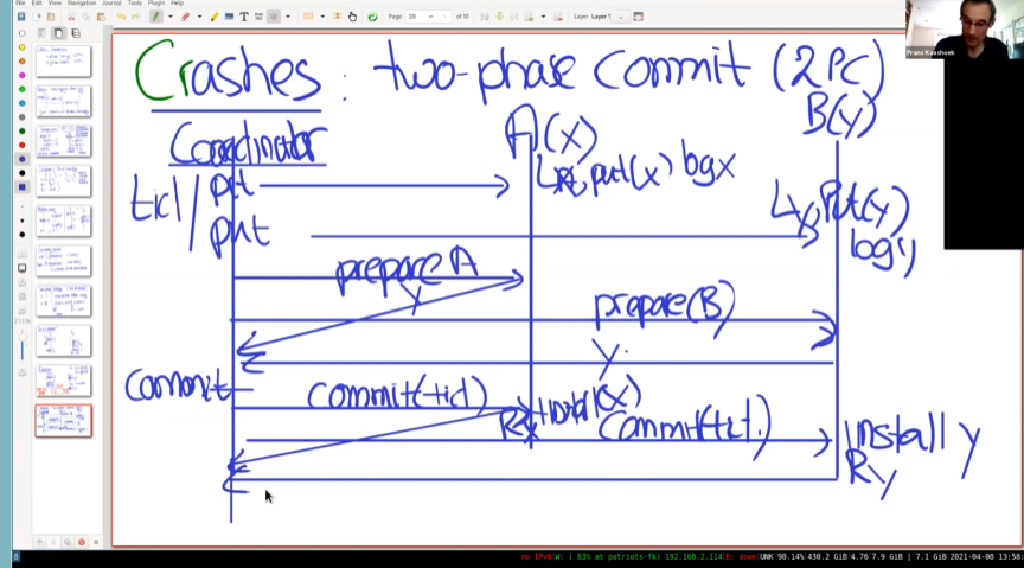 File Edit View Navigation Journal Tools Plugin Help
Page 10 of 10 Layer Layer 1
Frans Kaashoek
Crashes: two-phase commit (2PC)
Coordinator A(x) B(y)
tid/ put Lx, put(x) log x
put Ly, Put(y)
log y
prepare A
y prepare(B)
y.
commit commit(tid) install(x)
Rx commit(tid.) install y
Ry
no IPv6|W: ( 83% at patriots-fk) 192.168.2.114|E: down|UNK 98.14% 430.2 GiB 4.76 7.9 GiB | 7.1 GiB 2021-04-08 13:58: